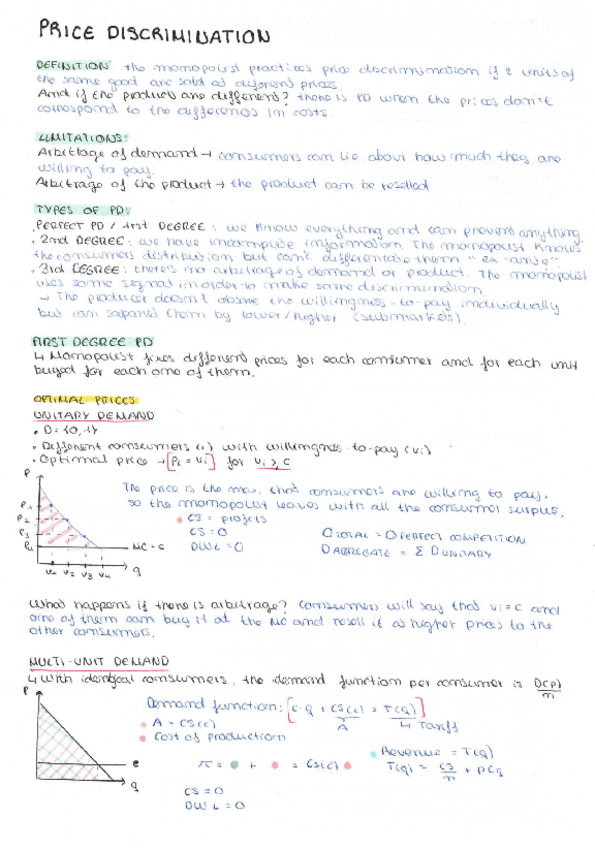 PRICE DISCRIMINATION
DEFINITION: the monopolist practices price discrimination if 2 units of
the same good are sold at diferent prices.
And if the products are different? there is PD when the prices don't
correspond to the differences in costs.
LIMITATIONS:
Arbitrage of demand → consumers can lie about how much they are
willing to pay.
Arbitrage of the product → the product can be reselled
TYPES OF PD:
.PERFECT PD / first DEGREE: we know everything and can prevent anything
. 2nd DEGREE: we have incomplete information. The monopolist knows
the consumers distribution but can't differentiate them "ex-ante".
. 3rd DEGREE: there's no arbitrage of demand or product. The monopolist
uses some signal in order to make some discrimination.
→ The producer doesn't observe the willingness-to-pay individually
but can separate them by lower/higher (submarkets).
FIRST DEGREE PD
↳ Monopolist fixes different prices for each consumer and for each unit
buyed for each one of them.
OPTIMAL PRICES
UNITARY DEMAND
• D = {0,1}
• Different consumers (i) with willingness-to-pay (vi)
• Optimal price → [Pi = vi] for vi ≥ c
P
The price is the max. that consumers are willing to pay,
P1
so the monopolist leaves with all the consumer surplus.
P2
• CS = profits
P3
CS = 0
D TOTAL = D PERFECT COMPETITION
P4
MC = c
DWL = 0
D AGGREGATE = Σ D UNITARY
v1 v2 v3 v4 q
What happens if there is arbitrage? Consumers will say that vi = c and
one of them can buy it at the MC and resell it at higher prices to the
other consumers.
MULTI-UNIT DEMAND
↳ With identical consumers, the demand function per consumer is D(p)/n
P
Demand function: [c·q + CS(c) = T(q)]
• A = CS(c)
A
↳ Tariff
• Cost of production
• Revenue = T(q)
c
π = • + • = CS(c) •
T(q) = CS/n + pcq
q
CS = 0
DWL = 0